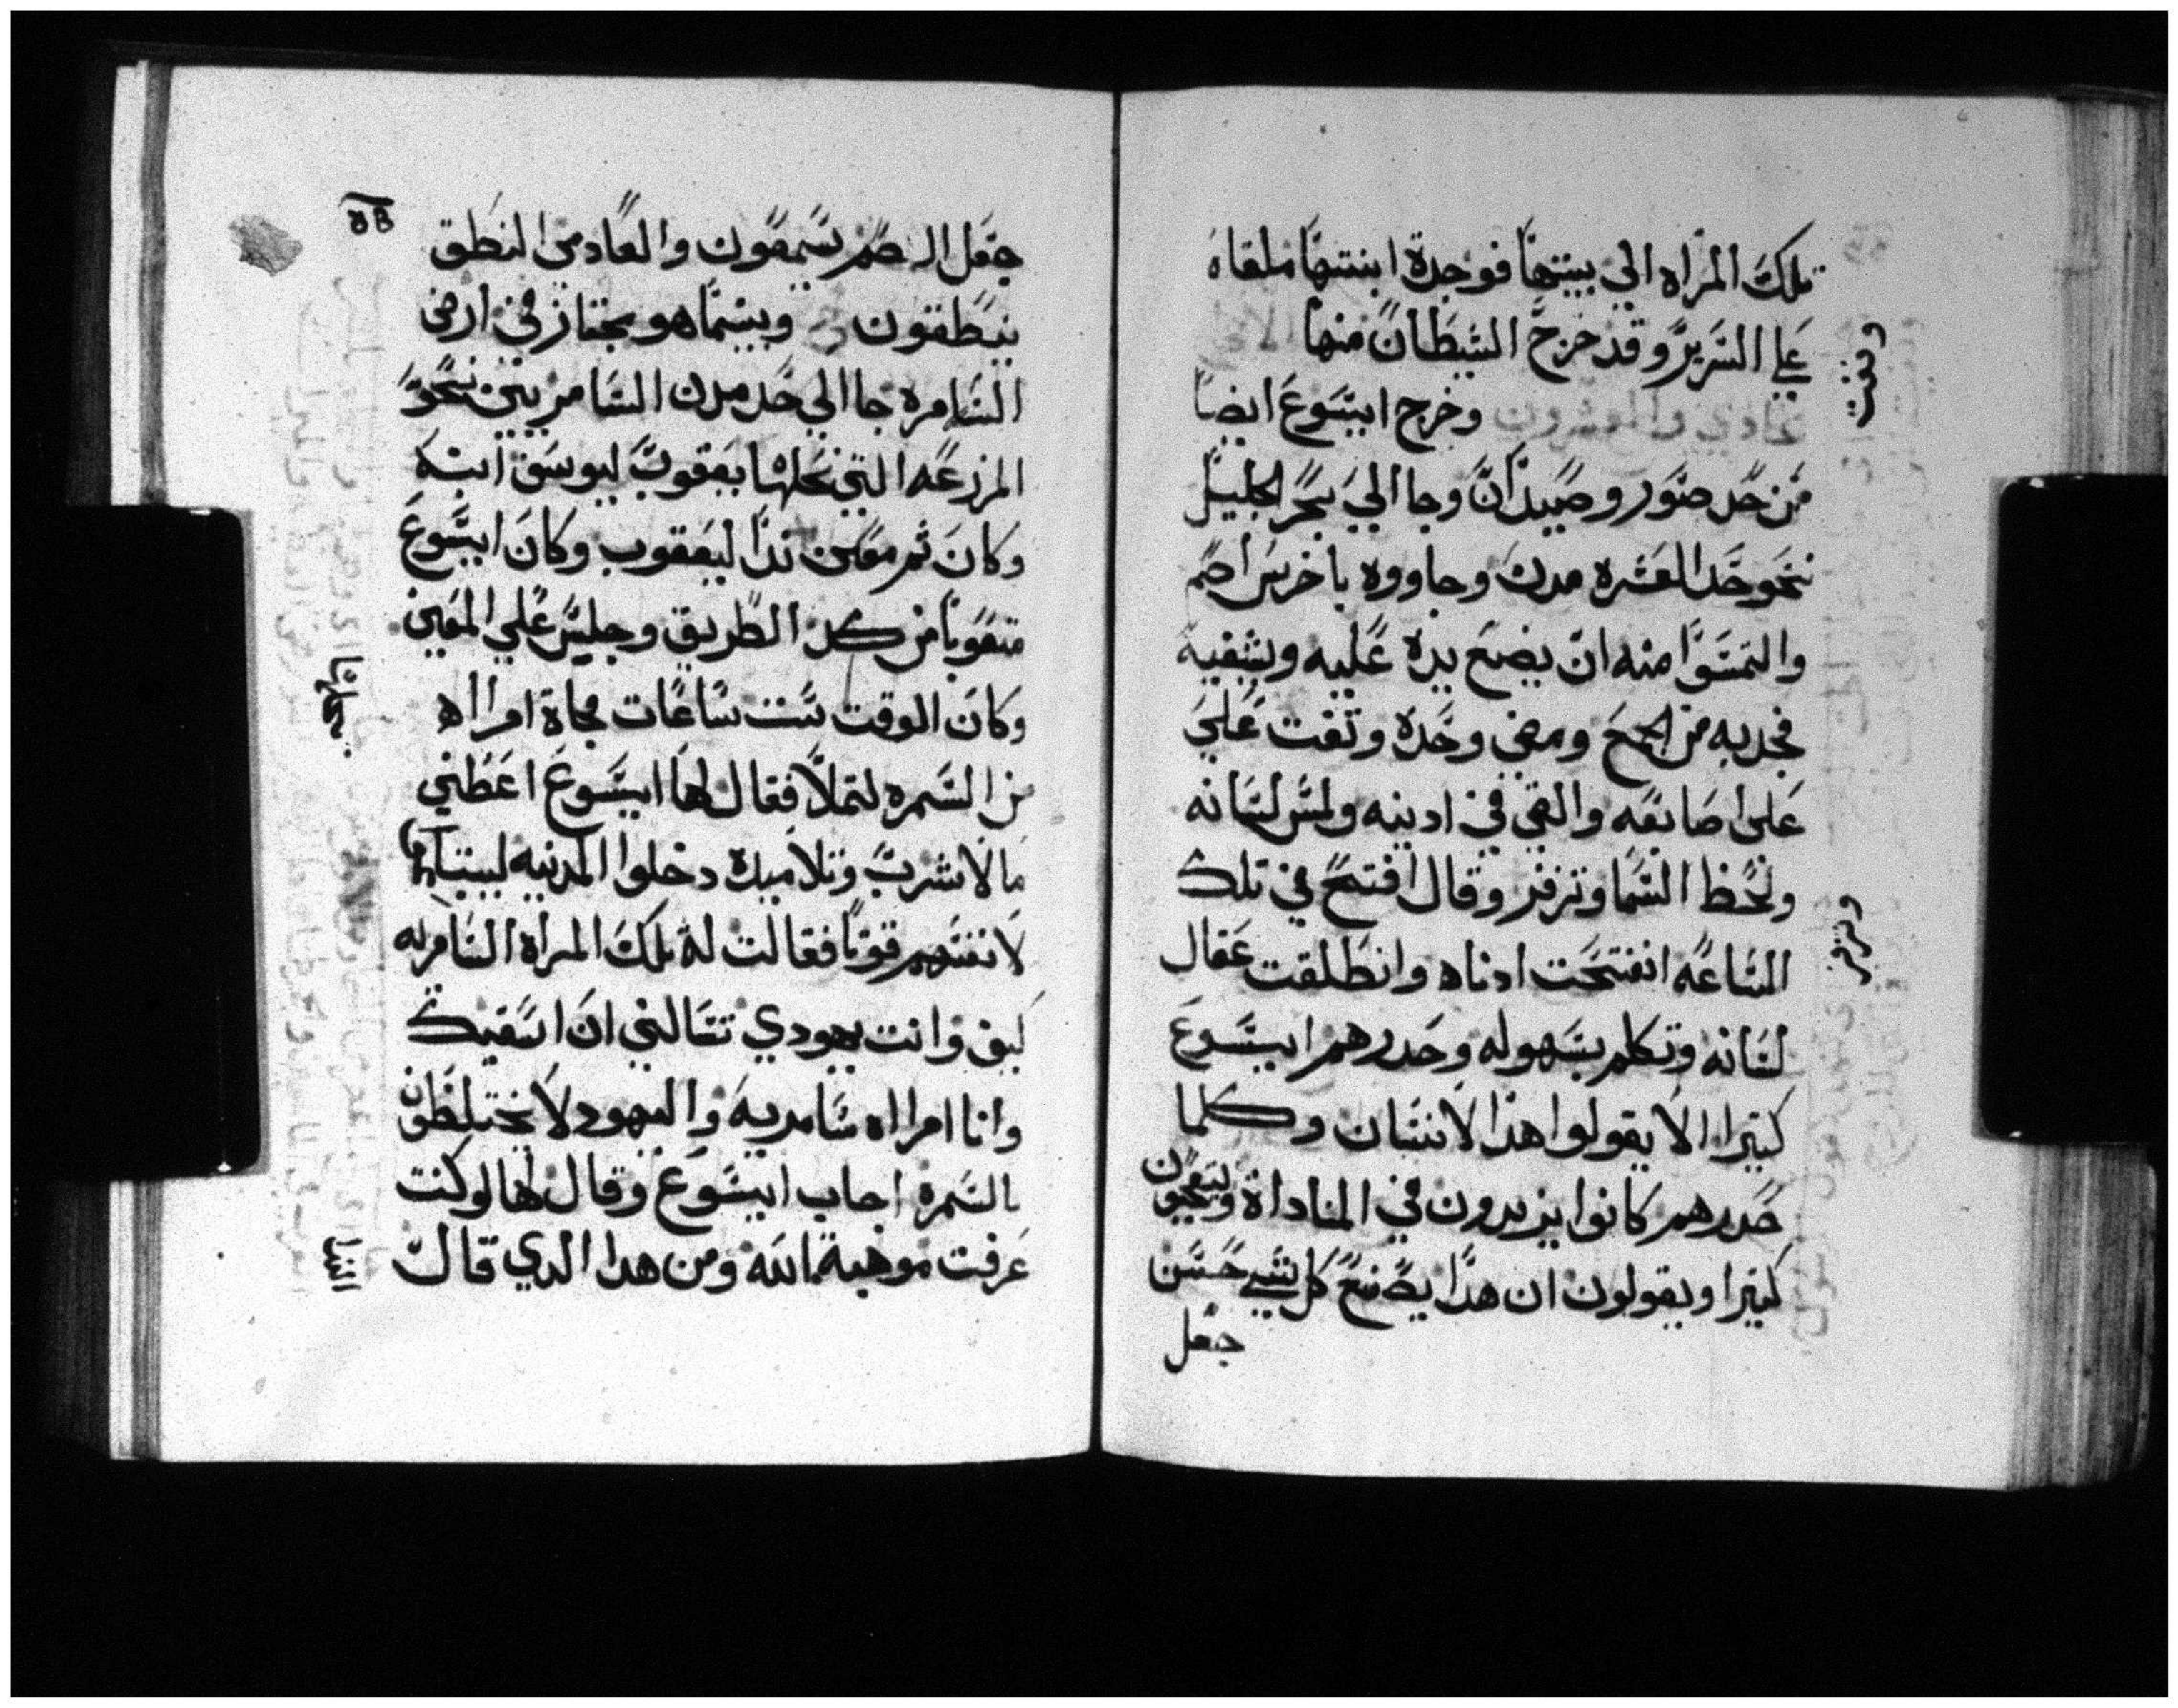 تلك المراه الي بيتها فوجدة ابنتها ملقاه
علي السرير وقد خرج الشيطان منها
الحادي والعشرون وخرج ايسوع ايضا
من حد صور وصيدان وجا الي بحر الجليل
نحو حد العشره مدن وجاووه باخرس اصم
والتمسوا منه ان يضع يده عليه ويشفيه
فجدبه من الجمع ومضي وحده وتفت علي
علي اصابعه والقي في ادنيه ولمس لسانه
ولحظ السما وتزفر وقال افتح في تلك
الساعه انفتحت ادناه وانطلقت عقال
لسانه وتكلم بسهوله وحدرهم ايسوع
كتيرا الا يقولوا هدا لانسان وكلما
حدرهم كانوا يزيدون في المناداة ويتعجبون
كتيرا ويقولون ان هدا يصنع كل شي حسن
جعل
وتفت
وتزفر
جعل الصم يسمعون والعادمي النطق
ينطقون وبينما هو مجتاز في ارض
السامره جا الي حد مدن السامريين نحو
المزرعه التي نحلها يعقوب ليوسف ابنه
وكان تم معين ندا ليعقوب وكان ايسوع
متعوبا من كد الطريق وجلس علي المعين
وكان الوقت ست ساعات فجاة امرااه
من السمره لتملا فقال لها ايسوع اعطني
ما لاشرب وتلاميده دخلوا المدينه ليبتاعوا
لانفسهم قوتا فقالت له تلك المراة السامريه
كيف وانت يهودي تسالني ان اسقيك
وانا امرااه سامريه واليهود لا يختلطون
بالسمره اجاب ايسوع وقال لها لو كنت
عرفت موهبة الله ومن هدا الدي قال
نحلها
الندا